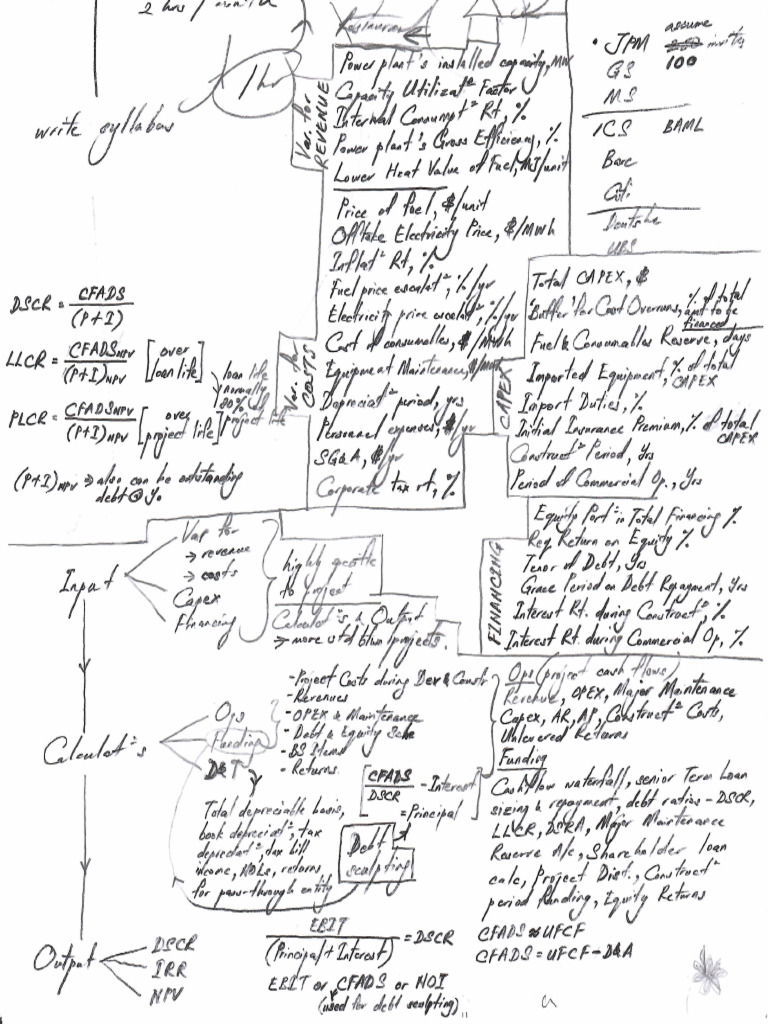 2 hrs /
write syllabus
1 hr
Restaurant
Var. for
REVENUE
Power plant's installed capacity, MW
Capacity Utilizatⁿ Factor
Internal Consumptⁿ Rt, %
Power plant's Gross Efficiency, %
Lower Heat Value of Fuel, MJ/unit
Price of fuel, $/unit
Offtake Electricity Price, $/MWh
Inflatⁿ Rt, %
Fuel price escalatⁿ, %/yr
Electricity price escalatⁿ, %/yr
Var. for
COSTS
Cost of consumables, $/MWh
Equipment Maintenance, $/MWh
Depreciatⁿ period, yrs
Personnel expenses, $/yr
SG&A, $/yr
Corporate tax rt, %
• JPM assume
100
GS
MS
ICS BAML
Barc
Citi
Deutsche
UBS
CAPEX
Total CAPEX, $
'Buffer' for Cost Overruns, % of total
amt to be
financed
Fuel & Consumables Reserve, days
Imported Equipment, % of total
CAPEX
Import Duties, %
Initial Insurance Premium, % of total
CAPEX
Constructⁿ Period, Yrs
Period of Commercial Op., Yrs
FINANCING
Equity Portⁿ in Total Financing %
Req Return on Equity %
Tenor of Debt, Yrs
Grace Period on Debt Repayment, Yrs
Interest Rt. during Constructⁿ, %
Interest Rt. during Commercial Op, %
DSCR = CFADS
(P+I)
LLCR = CFADS NPV [over
(P+I) NPV loan life]
loan life
normally
80% of
project life
PLCR = CFADS NPV [over
(P+I) NPV project life]
(P+I) NPV ⇒ also can be outstanding
debt @ Y0
Input
Var for
→ revenue
→ costs
Capex
Financing
highly specific
to project
Calculatⁿs & Output
⇒ more std btwn projects.
Calculatⁿs
Ops
Funding
D&T
- Project Costs during Dev & Constr
- Revenues
- OPEX & Maintenance
- Debt & Equity Sche
- BS Items
- Returns
[CFADS - Interest
DSCR = Principal]
Total depreciable basis,
book depreciatⁿ, tax
depreciatⁿ, tax bill
income, NOLs, returns
for pass-through entity
Debt
sculpting
Ops (project cash flows)
Revenue, OPEX, Major Maintenance
Capex, AR, AP, Constructⁿ Costs,
Unlevered Returns
Funding
Cashflow waterfall, senior Term Loan
sizing & repayment, debt ratios - DSCR,
LLCR, DSRA, Major Maintenance
Reserve A/c, Shareholder loan
calc, Project Dist., Constructⁿ
period funding, Equity Returns
CFADS ≈ UFCF
CFADS = UFCF - D&A
Output
DSCR
IRR
NPV
EBIT
(Principal + Interest) = DSCR
EBIT or CFADS or NOI
(used for debt sculpting)